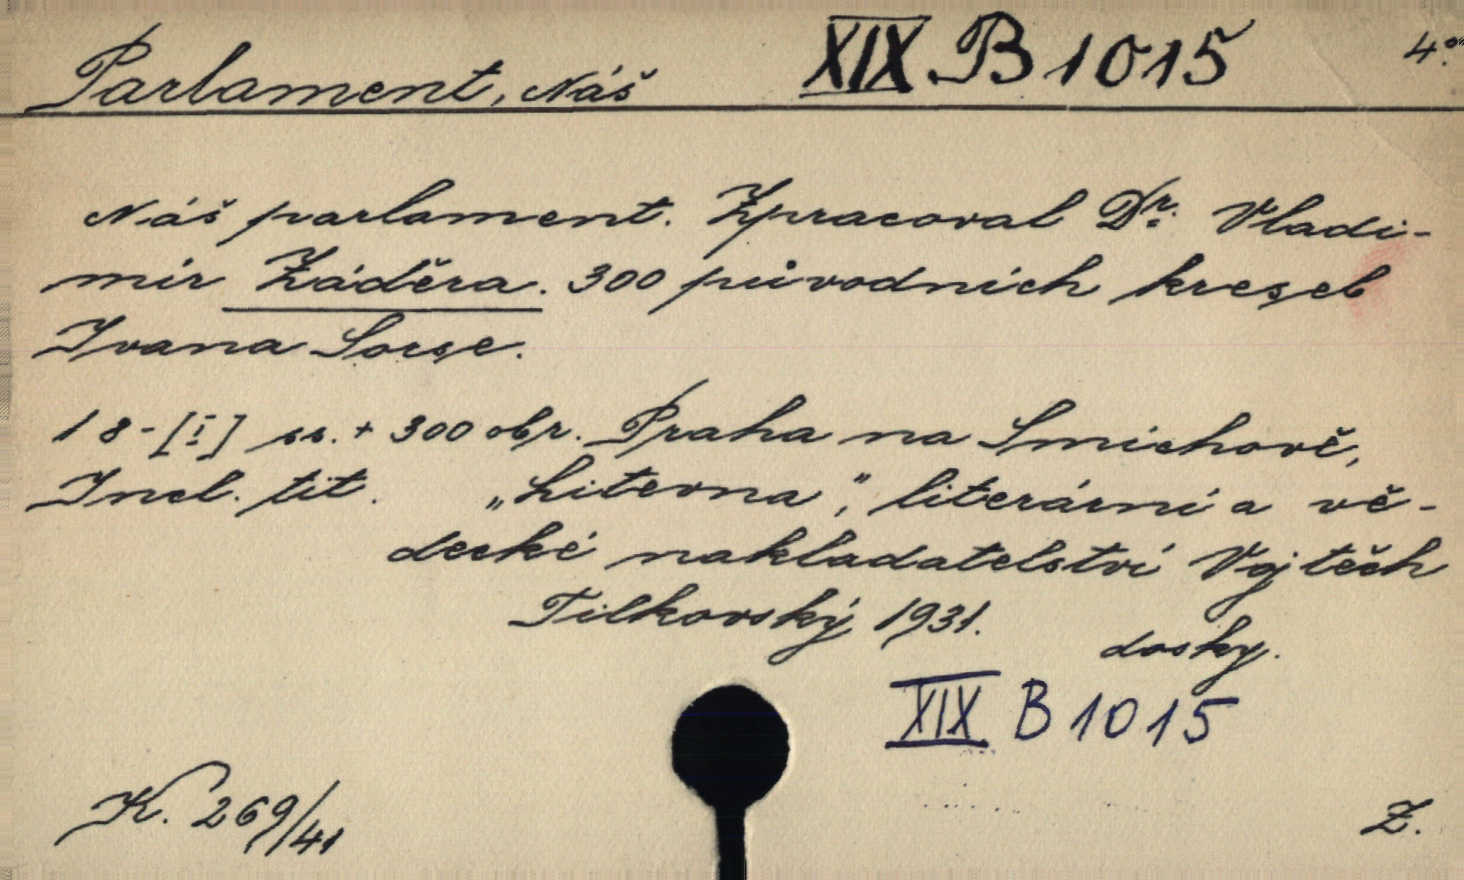 Parlament, Náš XIX B 1015 4°
Náš parlament. Zpracoval Dr. Vladi-
mír Záděra. 300 původních kreseb
Ivana Sorse.
18-[I] ss. + 300 obr. Praha na Smíchově,
Incl. tit. „Literna“, literární a vě-
decké nakladatelství Vojtěch
Tilkovský 1931.
dosky.
XIX B 1015
K. 269/41
Z.